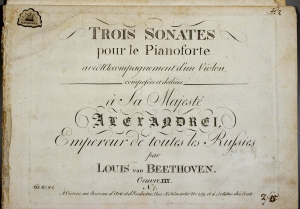 TROIS SONATES
pour le Pianoforte
avec l'Accompagnement d'un Violon,
composées et dédiées
à Sa Majesté
ALEXANDRE I,
Empereur de toutes les Russies
par
LOUIS van BEETHOVEN.
Oeuvre
N.
A Vienne au Bureau d'Arts et d'Industrie